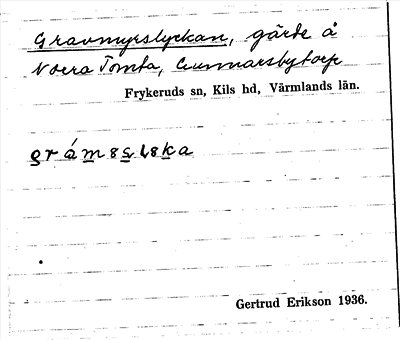 Gravmyrslyckan, gärde å
Norra Tomta, Gunnarsbytorp
Frykeruds sn, Kils hd, Värmlands län.
Gertrud Erikson 1936.